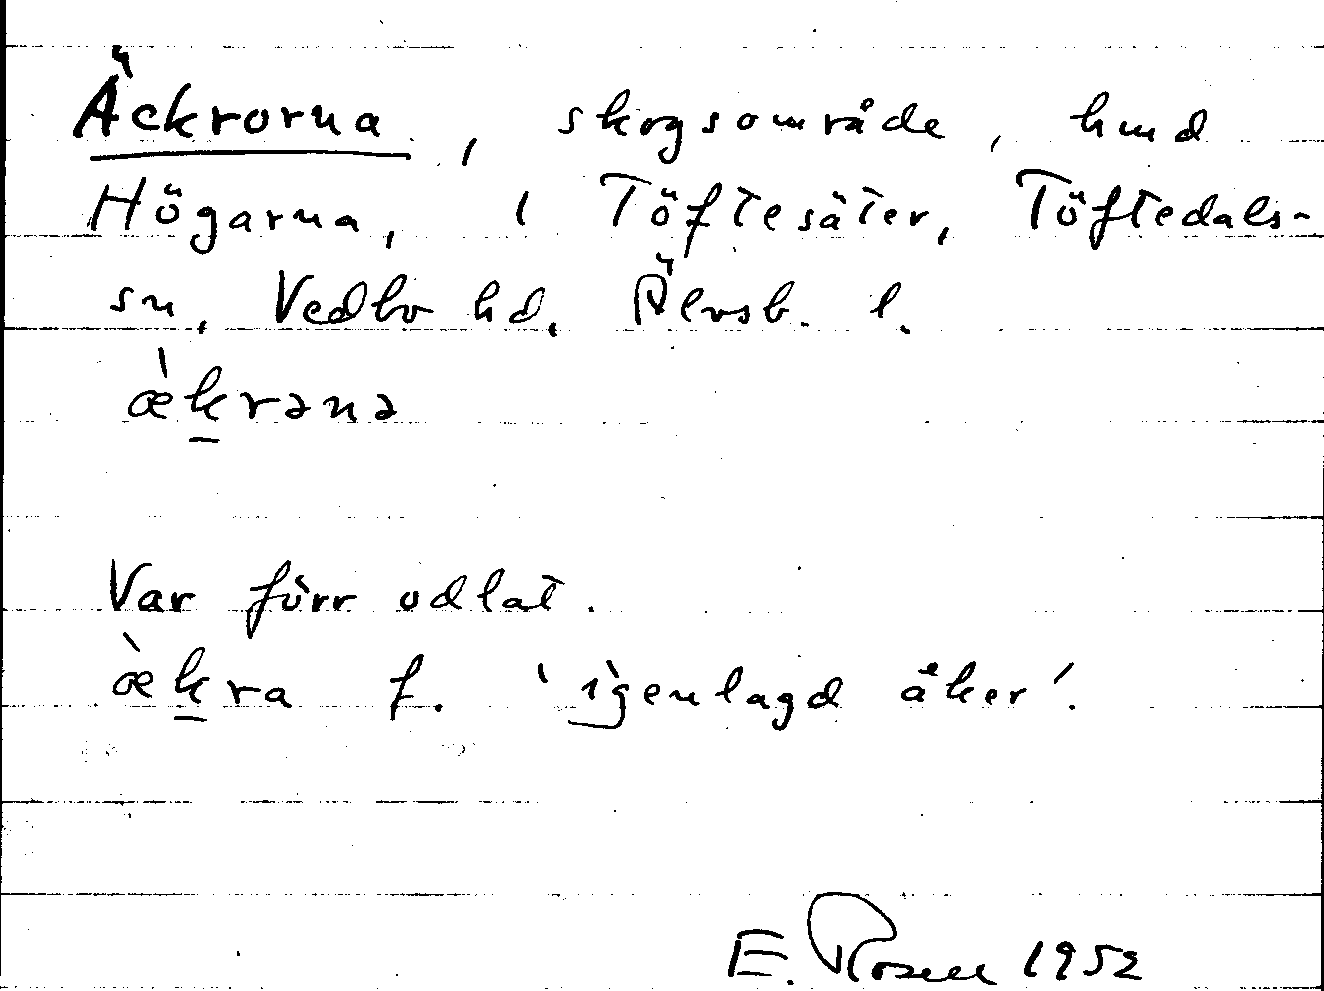 Äckrorna, skogsområde, hmd
Högarna, i Töftesäter, Töftedals-
sn, Vedbo hd, Älvsb. l.
æ̀krənə
Var förr odlat.
æ̀kra f. 'igenlagd åker'.
E. Rosell 1952